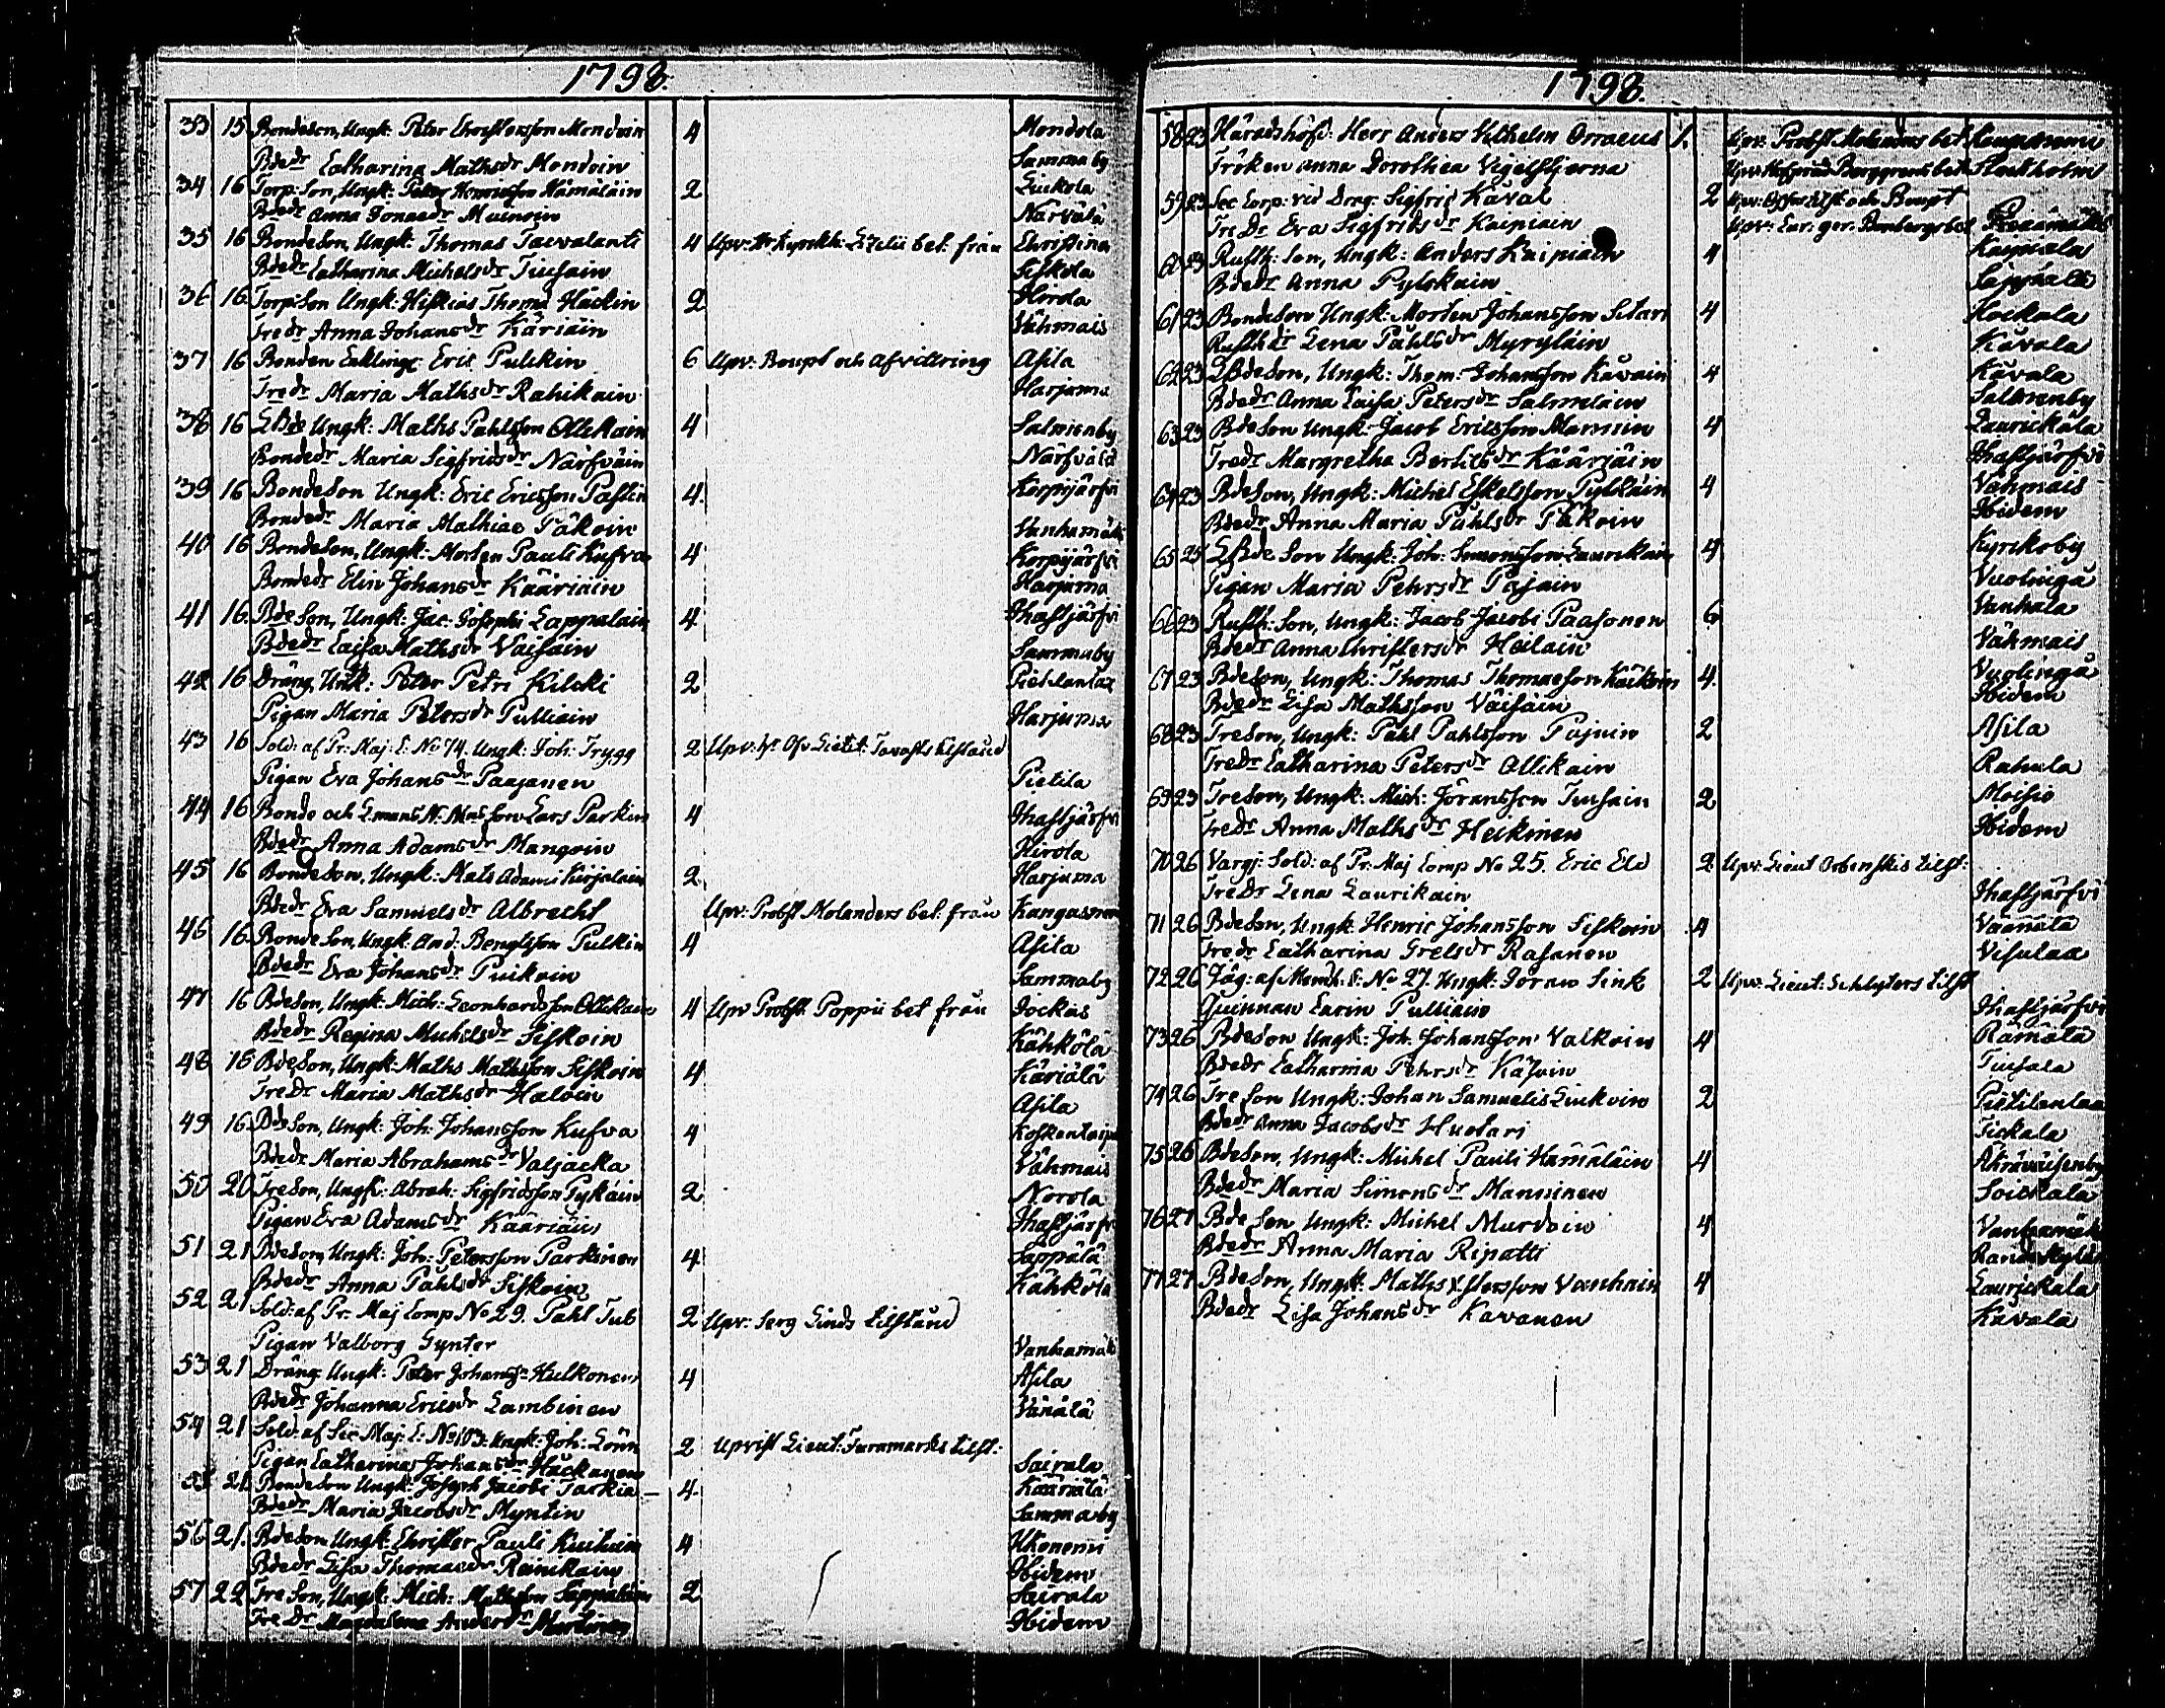 1798.
33 15 Bondeson, Ungk: Peter Christersson Mondoin 4 Mondola
Bdedr Catharina Mathsdr Mondoin Sammaby
34 16 Torp: Son, Ungk: Peter Henricsson Hämäläin 2 Liukola
Bdedr Anna Jonaedr Muinoin Närvälä
35 16 Bondeson, Ungk: Thomas Taevalanti 4 Upv: bet: från Christina
Bdedr Catharina Michelsdr Tiusain Siskola
36 16 Torp: Son Ungk: Hiskias Thomæ Häckin 2 Hirola
Tredr Anna Johansdr Käriäin Vähmais
37 16 Bonden Enklingr Eric Pulckin 6 Upv: Boupt och afvittring Asila
Tredr Maria Mathsdr Rahikain Harjuma
38 16 LBde Ungk: Maths Pahlsson Ollikain 4 Salmenby
Bondedr Maria Sigfridsdr Närfväin Närfvälä
39 16 Bondeson Ungk: Eric Ericsson Paslin 4 Korpijärfvi
Bondedr Maria Mathiae Päkoin Vanhamäki
40 16 Bondeson, Ungk: Morten Pauli Kufva 4 Korpijärfvi
Bondedr Elin Johansdr Kääriäin Harjuma
41 16 Bdeson, Ungk: Jac: Josephi Lappalain 4 Thasljärfvi
Bdedr Caisa Mathsdr Väisäin Sammaby
42 16 Dräng, Ungk: Peter Petri Kilcki 2 Pietilanlax
Pigan Maria Petersdr Pulliain Harjuma
43 16 Sold: af Pr: Maj: C: No 74. Ungk: Joh: Trygg 2 Upv:
Pigan Eva Johansdr Paajanen Pietila
44 16 Bonde och Lars Parkin 4 Thasljärfvi
Bdedr Anna Adamsdr Mangoin Hirola
45 16 Bondeson, Ungk: Mats Adami Kirjalain 2 Harjuma
Bdedr Eva Samuelsdr Albrecht Upv: Probst Molanders bet: från Kangasnemi
46 16 Bondeson, Ungk: And: Bengtsson Pulkin 4 Asila
Bdedr Eva Johansdr Puikoin Sammaby
47 16 Bdeson, Ungk: Mich: Leonhardsson Ollikain 4 Upv Probst: Poppii bet från Jockas
Bdedr Regina Michelsdr Siskoin Kähkölä
48 16 Bdeson, Ungk: Maths Mathsson Siskoin 4 Käriälä
Tredr Maria Mathsdr Haloin Asila
49 16 Bdeson, Ungk: Joh: Johansson Kufva 4
Bdedr Maria Abrahamsdr Valjacka Vähmais
50 20 Treson, Ungk: Abrah: Sigfridsson Pykäin 2 Norola
Pigan Eva Adamsdr Kääriäin Thasljärfvi
51 21 Bdeson, Ungk: Joh: Petersson Parkinen 4 Säppälä
Bdedr Anna Pahlsdr Siskoin Kähkölä
52 21 Sold: af Pr: Maj Comp No 29. Pahl Tub 2 Upv: Serg Linds tilstånd
Pigan Valborg Gynter Vanhamäki
53 21 Dräng Ungk: Peter Johanss: Hulkonen 4 Asila
Bdedr Johanna Ericsdr Lambinen Vänälä
54 21 Sold: af Sec Maj: C: No 103: Ungk: Joh: Lönn 2 Upvist Lieut: tilst:
Pigan Catharina Johansdr Häckanen Sairala
55 21 Bondeson Ungk: Joseph Jacobi Tarkia 4 Kääriälä
Bdedr Maria Jacobsdr Myntin Sammaby
56 21. Bdeson Ungk: Christer Pauli 4
Bdedr Lisa Thomaedr Rainikain Ibidem
57 22 Treson, Ungk: Mich: Mathsson Säppäläin 2 Sairala
Tredr Magdalena Andersdr Ibidem
1798.
58 23 Häradshöfd: Herr Anders Vilhelm Orraeus 1. Upv: Probst Molanders bet Kangasnemi
Fröken Anna Dorothea Vigelstjerna Upv: bet Stockholm
59 23 Sec Corp: vid Drag: Sigfrid Käväl 2 Upv: och Boupt
Tredr Eva Sigfridsdr Kaipiain Upv:
60 23 Rusth: Son, Ungk: Anders Kaipiain 4 Kaipiala
Bdedr Anna Pylckäin Säppälä
61 23 Bondeson Ungk: Morten Johansson Sitari 4
Rusthdr Lena Pahlsdr Myryläin Käväla
62 23 LBdeson, Ungk: Thom: Johansson Käväin 4 Käväla
Bdedr Anna Caisa Petersdr Salmelain Salmenby
63 23 Bdeson Ungk: Jacob Ericsson Mannin 4 Laurickala
Tredr Margretha Bertilsdr Kääriäin Thasljärfvi
64 23 Bdeson, Ungk: Michel Eskelsson Pylckäin 4 Vähmais
Bdedr Anna Maria Pahlsdr Päkoin Ibidem
65 25 LBde Son Ungk: Joh: Simonsson Laurikain 4 Kyrckoby
Pigan Maria Pehrsdr Pajain Vuolingå
66 23 Rusth: Son, Ungk: Jacob Jacobi Paasonen 6 Vanhala
Bdedr Anna Christersdr Heiläin Vähmais
67 23 Bdeson, Ungk: Thomas Thomaeson Käikoin 4 Vuolingå
Bdedr Lisa Mathsson Väisäin Ibidem
68 23 Treson, Ungk: Pahl Pahlsson Pajuin 2 Asila
Tredr Catharina Petersdr Ollikain Rahula
69 23 Treson, Ungk: Mich: Göransson Tiusain 2 Moisio
Tredr Anna Mathsdr Heckinen Ibidem
70 26 Varg: Sold: af Pr: Maj Comp No 25. Eric Eld 2 Upv: Lieut Orbinskis tilst:
Tredr Lena Laurikain Thasljärfvi
71 26 Bdeson, Ungk: Henric Johansson Siskoin 4 Väänälä
Tredr Catharina Grelsdr Rasanen Visulax
72 26 Jäg: af C: No 27. Ungk: Göran Sink 2 Upv: Lieut: Schlyters tilst
Quinnan Carin Pulliain Thasljärfvi
73 26 Bdeson Ungk: Joh: Johansson Valkoin 4 Rämälä
Bdedr Catharina Pehrsdr Käsoin Tiusala
74 26 Treson Ungk: Johan Samuelis Liukoin 2 Pietilanlax
Bdedr Anna Jacobsdr Huotari
75 26 Bdeson, Ungk: Michel Pauli Hämäläin 4
Bdedr Maria Simonsdr Manninen Soickala
76 27 Bde Son, Ungk: Michel Murdoin 4 Vanhamäki
Bdedr Anna Maria Ripatti
77 27 Bdeson, Ungk: Maths Xstersson Vanhain 4 Laurickala
Bdedr Lisa Johansdr Kavanen Käväla